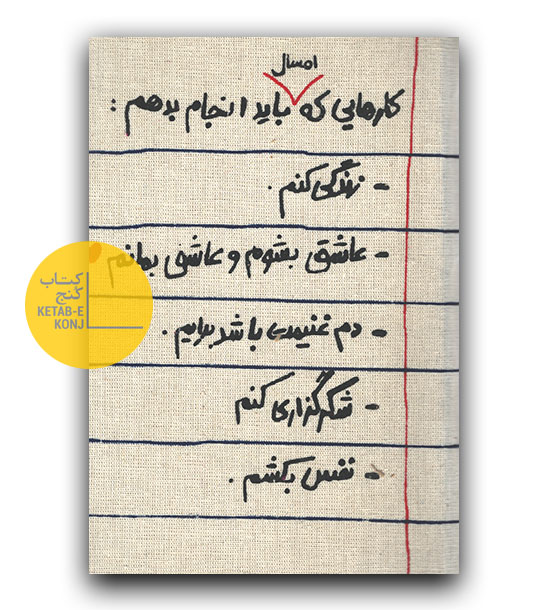 امسال
کارهایی که باید انجام بدهم :
- زندگی کنم .
- عاشق بشوم و عاشق بمانم
- دم غنیمتی باشد برایم .
- شکرگزاری کنم
- نفس بکشم .
کتاب
کنج
KETAB-E
KONJ